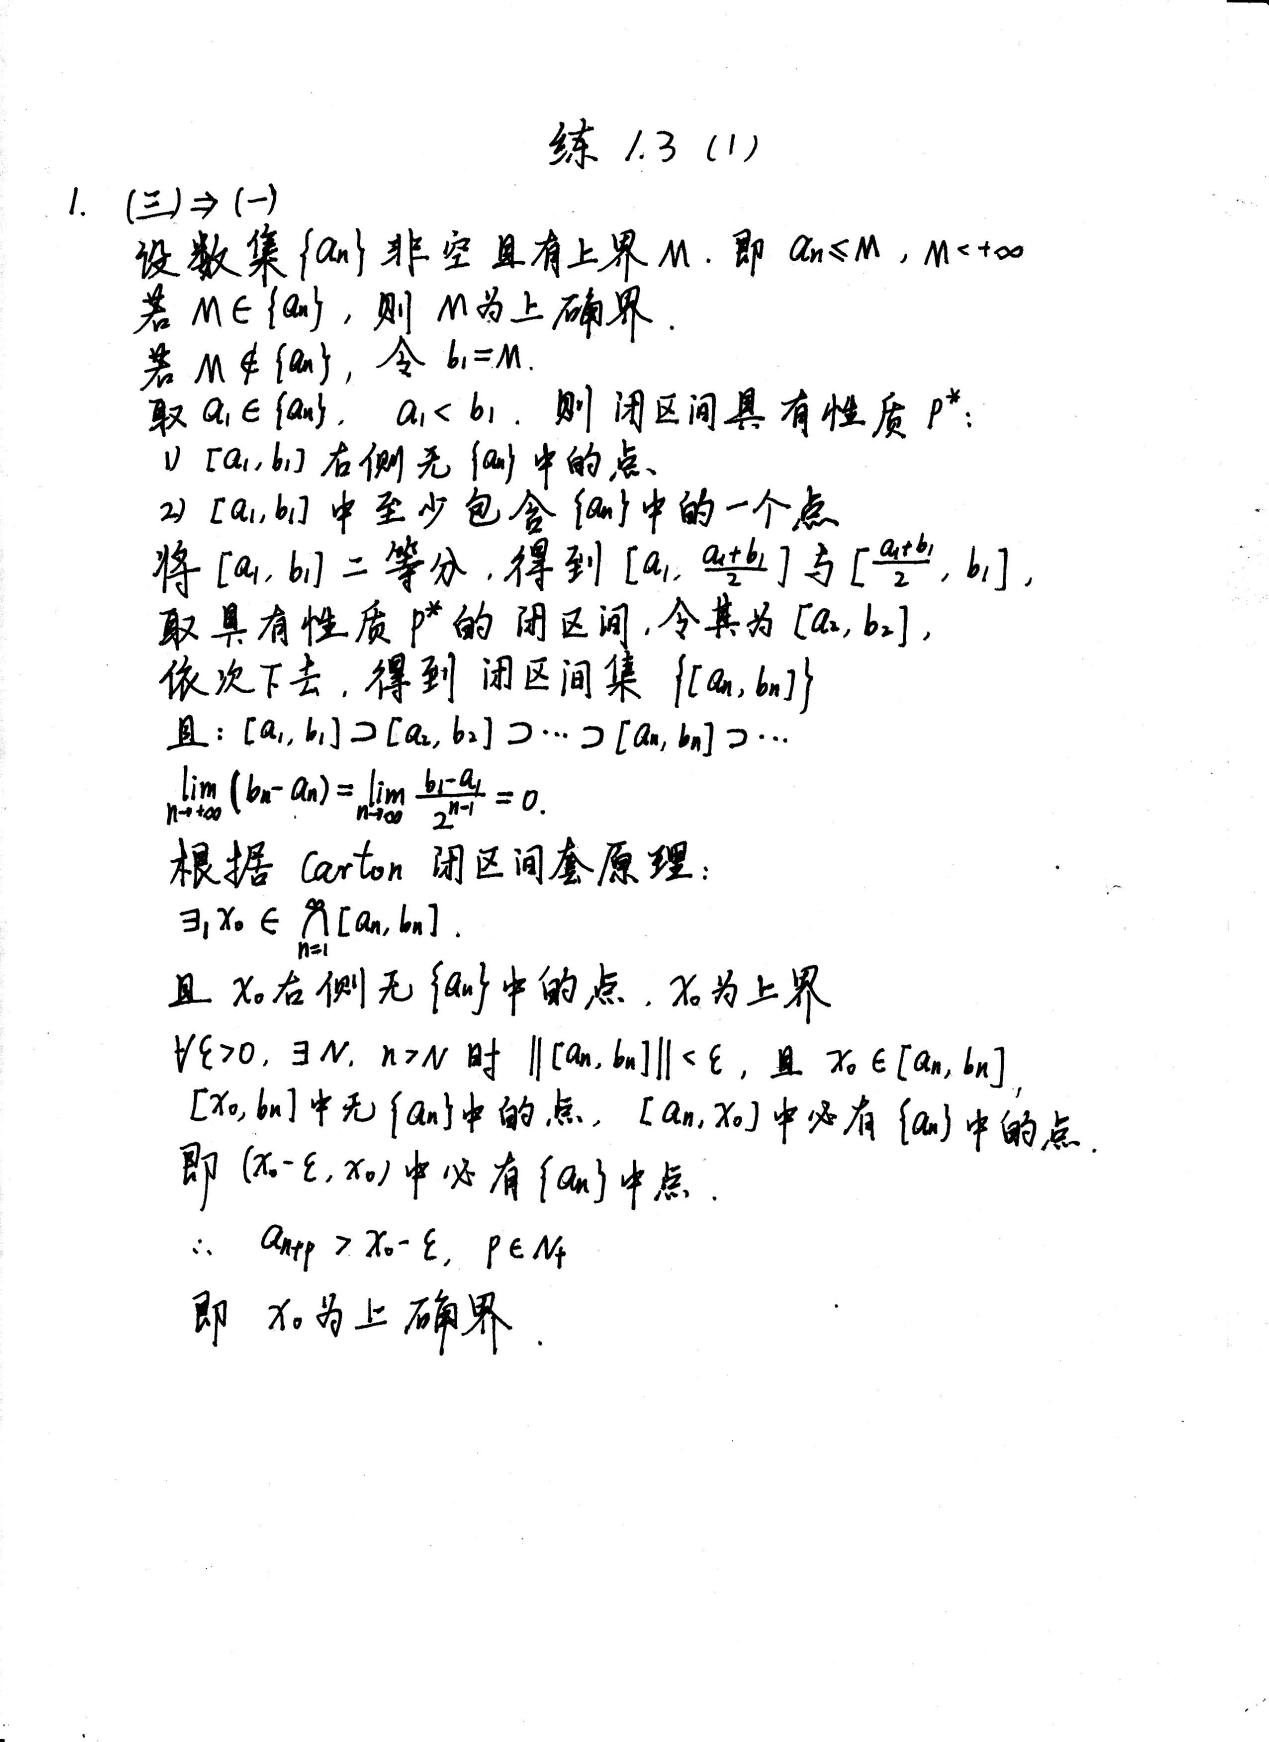 练 1.3 (1)
1. (三)⇒(一)
设数集{an}非空且有上界M. 即 an≤M, M<+∞
若 M∈{an}, 则 M为上确界.
若 M∉{an}, 令 b₁=M.
取 a₁∈{an}. a₁<b₁. 则闭区间具有性质P*:
1) [a₁,b₁]右侧无{an}中的点、
2) [a₁,b₁]中至少包含{an}中的一个点
将[a₁,b₁]二等分,得到[a₁, (a₁+b₁)/2]与[(a₁+b₁)/2, b₁],
取具有性质P*的闭区间,令其为[a₂,b₂],
依次下去,得到闭区间集{[an,bn]}
且: [a₁,b₁]⊃[a₂,b₂]⊃…⊃[an,bn]⊃…
lim n→+∞ (bn-an) = lim n→∞ (b₁-a₁)/2ⁿ⁻¹ = 0.
根据 Carton 闭区间套原理:
∃₁x₀ ∈ ∩ n=1 ∞ [an,bn].
且 x₀右侧无{an}中的点. x₀为上界
∀ε>0. ∃N. n>N时 ||[an,bn]||<ε, 且 x₀∈[an,bn],
[x₀,bn]中无{an}中的点, [an,x₀]中必有{an}中的点.
即(x₀-ε,x₀)中必有{an}中点.
∴ an+p > x₀-ε, p∈N+
即 x₀为上确界.